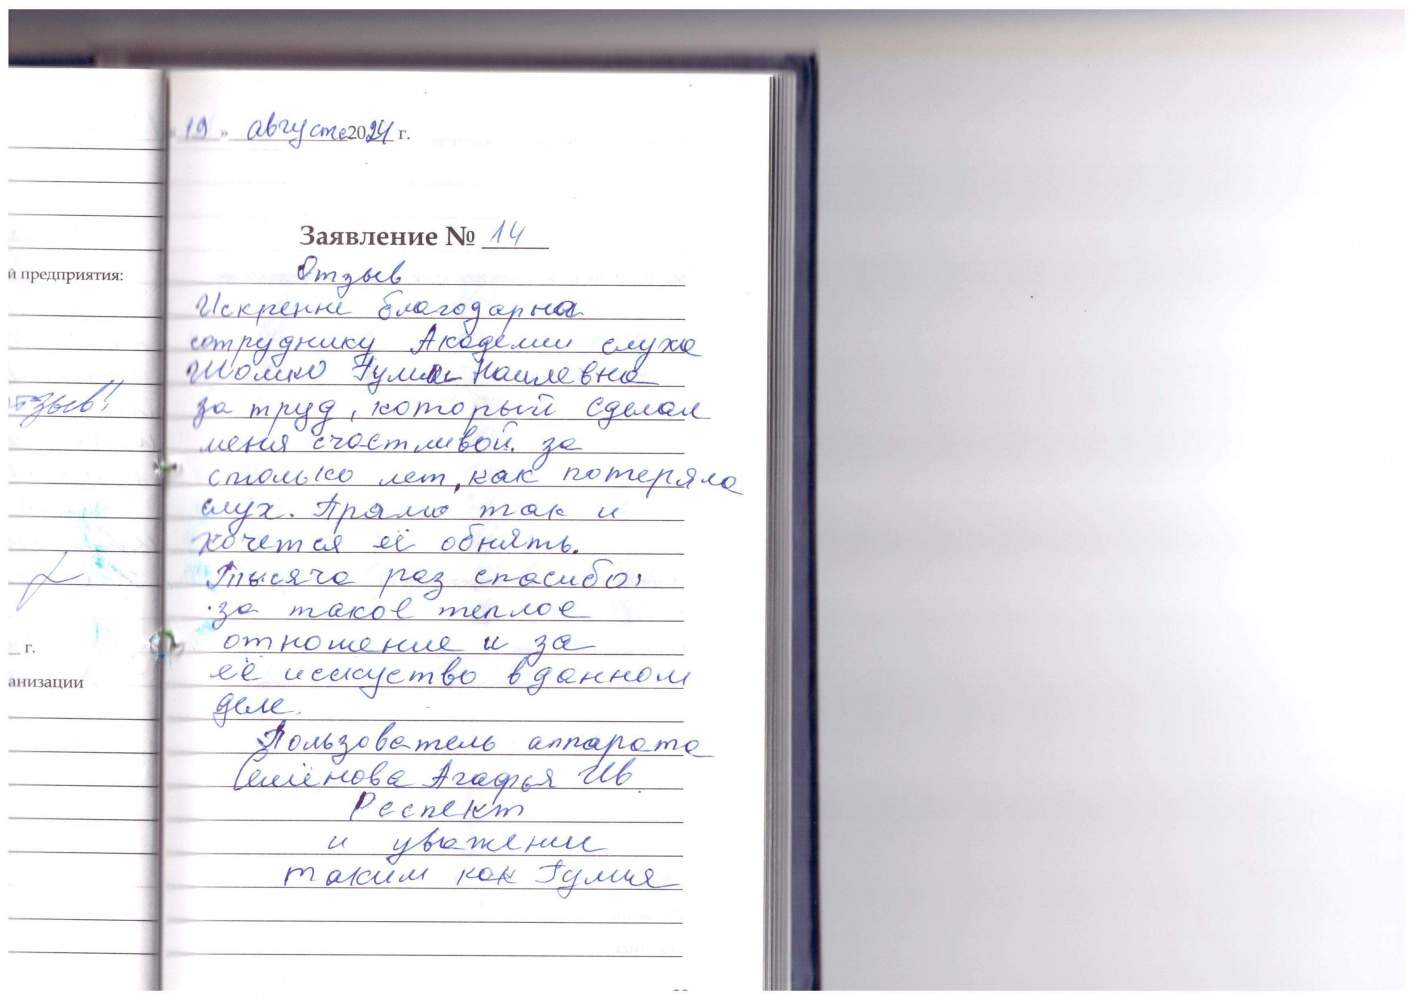 й предприятия:
отзыв!
г.
анизации
«19» августа 2024 г.
Заявление № 14
Отзыв
Искренне благодарна
сотруднику Академии слуха
Гулия Наилевна
за труд, который сделал
меня счастливой. за
столько лет, как потеряла
слух. Прямо так и
хочется её обнять.
Тысяча раз спасибо,
за такое теплое
отношение и за
её исскуство в данном
деле.
Пользователь аппарата
Семёнова Агафья Ив.
Респект
и уважение
таким как Гулия